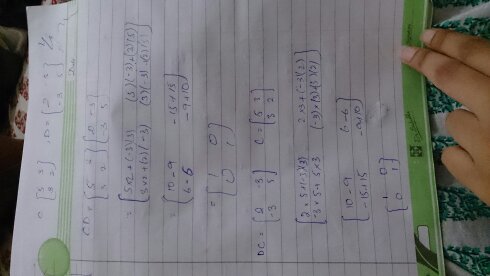 C [5 3
3 2] , D = [2 -3
-3 5]
CD = [5 3
3 2] [2 -3
-3 5]
= [5×2 + (-3)(3) (5)(-3)+(3)(5)
3×2 + (2)(-3) (3)(-3)+(2)(5)]
= [10-9 -15+15
6-6 -9+10]
= [1 0
0 1]
DC = [2 -3
-3 5] C = [5 3
3 2]
[2×5+(-3)(3) 2×3+(-3)(2)
-3×5+5×3 (-3)×(3)+(5)(2)]
[10-9 6-6
-15+15 -9+10]
[1 0
0 1]